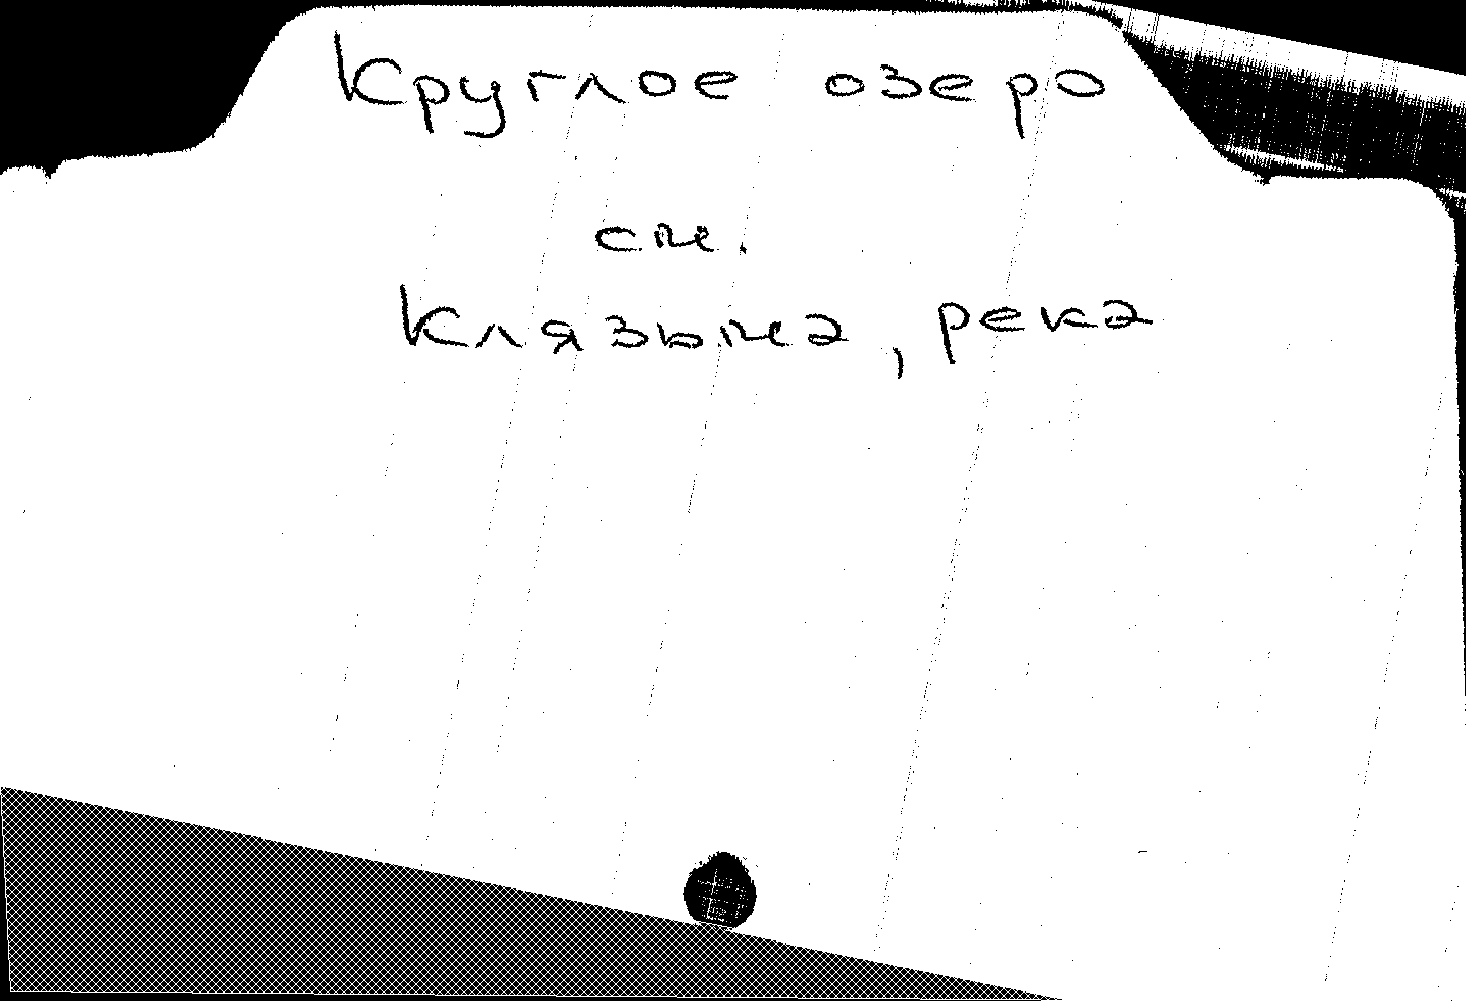 Круглое озеро
см.
Клязьма, река